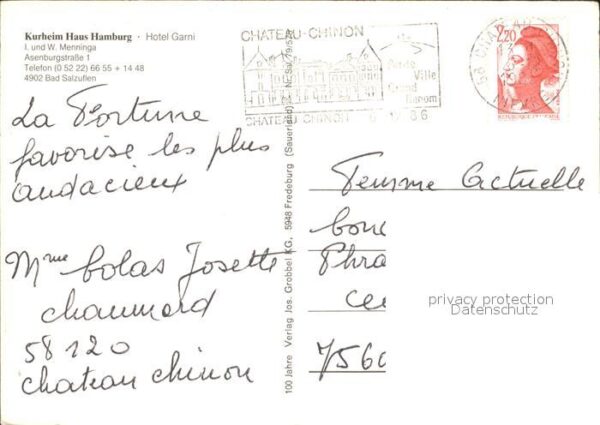 Kurheim Haus Hamburg · Hotel Garni
I. und W. Menninga
Asenburgstraße 1
Telefon (0 52 22) 66 55 + 14 48
4902 Bad Salzuflen
La Fortune
favorise les plus
audacieux
Mme Colas Josette
chaumard
58 120
chateau chinon
100 Jahre Verlag Jos. Grobbel KG, 5948 Fredeburg (Sauerland)
CHATEAU-CHINON
Petite Ville
Grand Renom
CHATEAU CHINON
2,20
Femme Actuelle
Phra
Ce
7560
privacy protection
Datenschutz